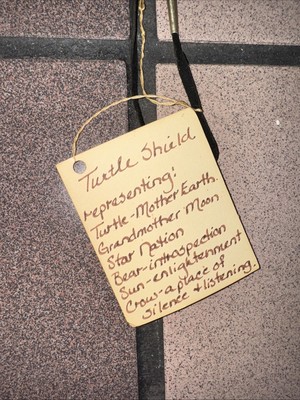 Turtle Shield
representing:
Turtle-Mother Earth.
Grandmother Moon
Star Nation
Bear-introspection
Sun-enlightenment
Crow-a place of
silence + listening.